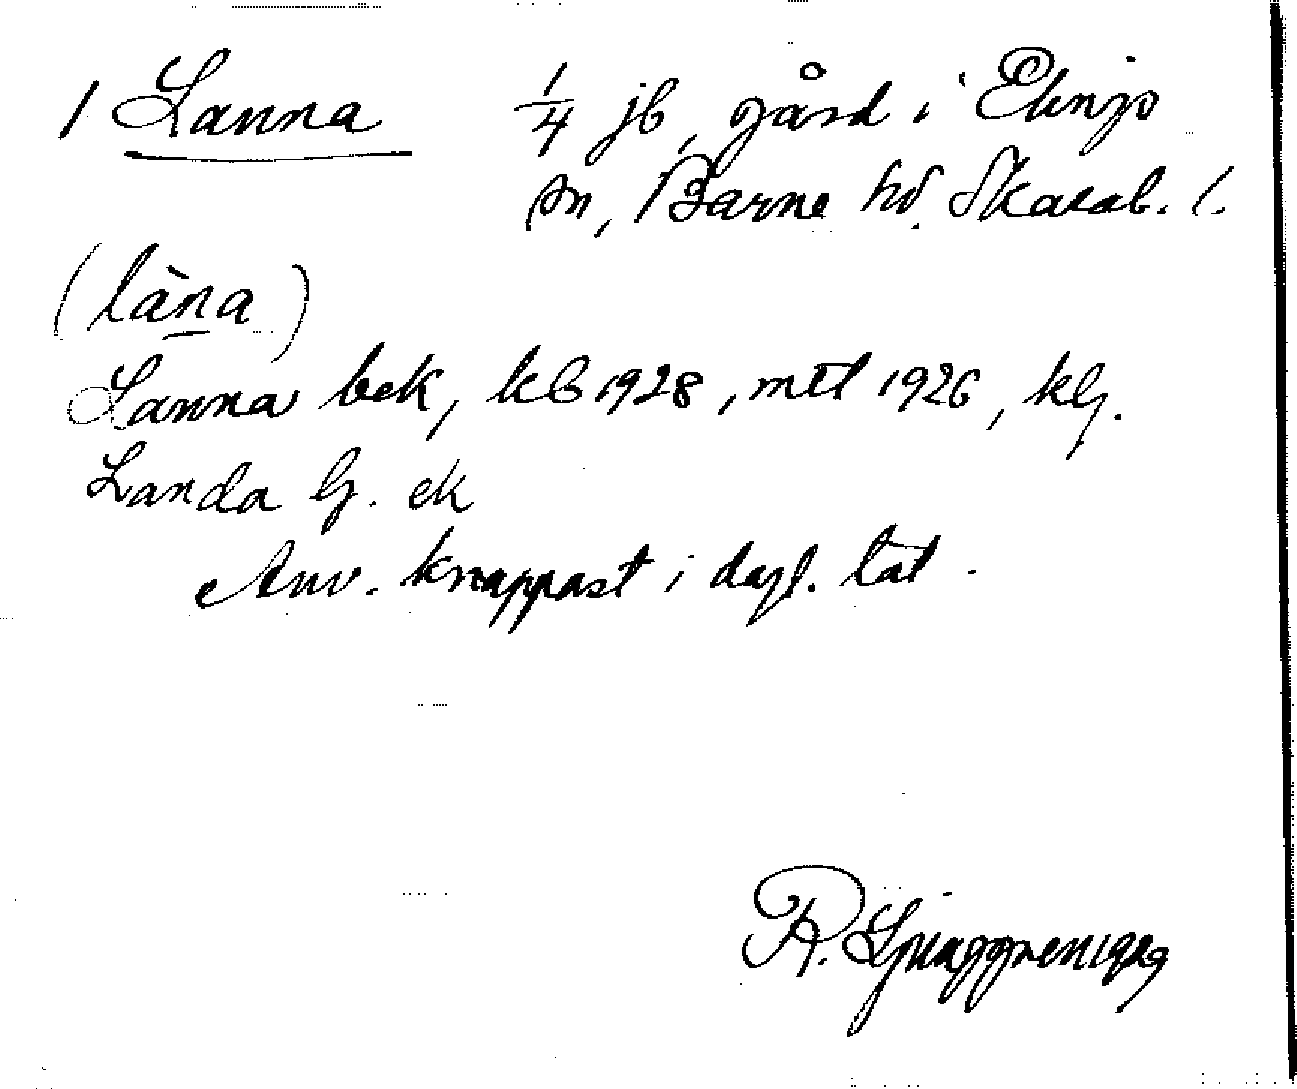 1 Lanna 1/4 jb, gård i Elings
sn, Barne hd. Skarab. l.
(làna)
Lanna bek, kb 1928, mtl 1926, klj.
Landa lj. ek
Anv. knappast i dagl. tal.
R. Ljunggren 1929